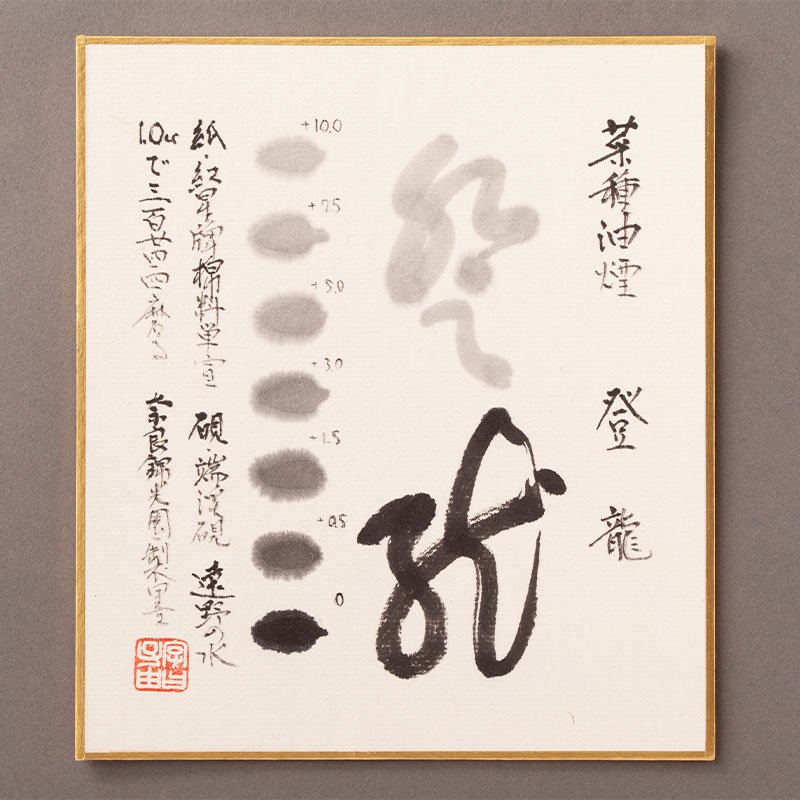 菜種油煙 登龍
登龍
+10.0
+7.5
+5.0
+3.0
+1.5
+0.5
0
紙・紅星牌棉料単宣 硯・端渓硯 遠野の水
1.0ccで三百廿四回磨る 奈良錦光園製墨